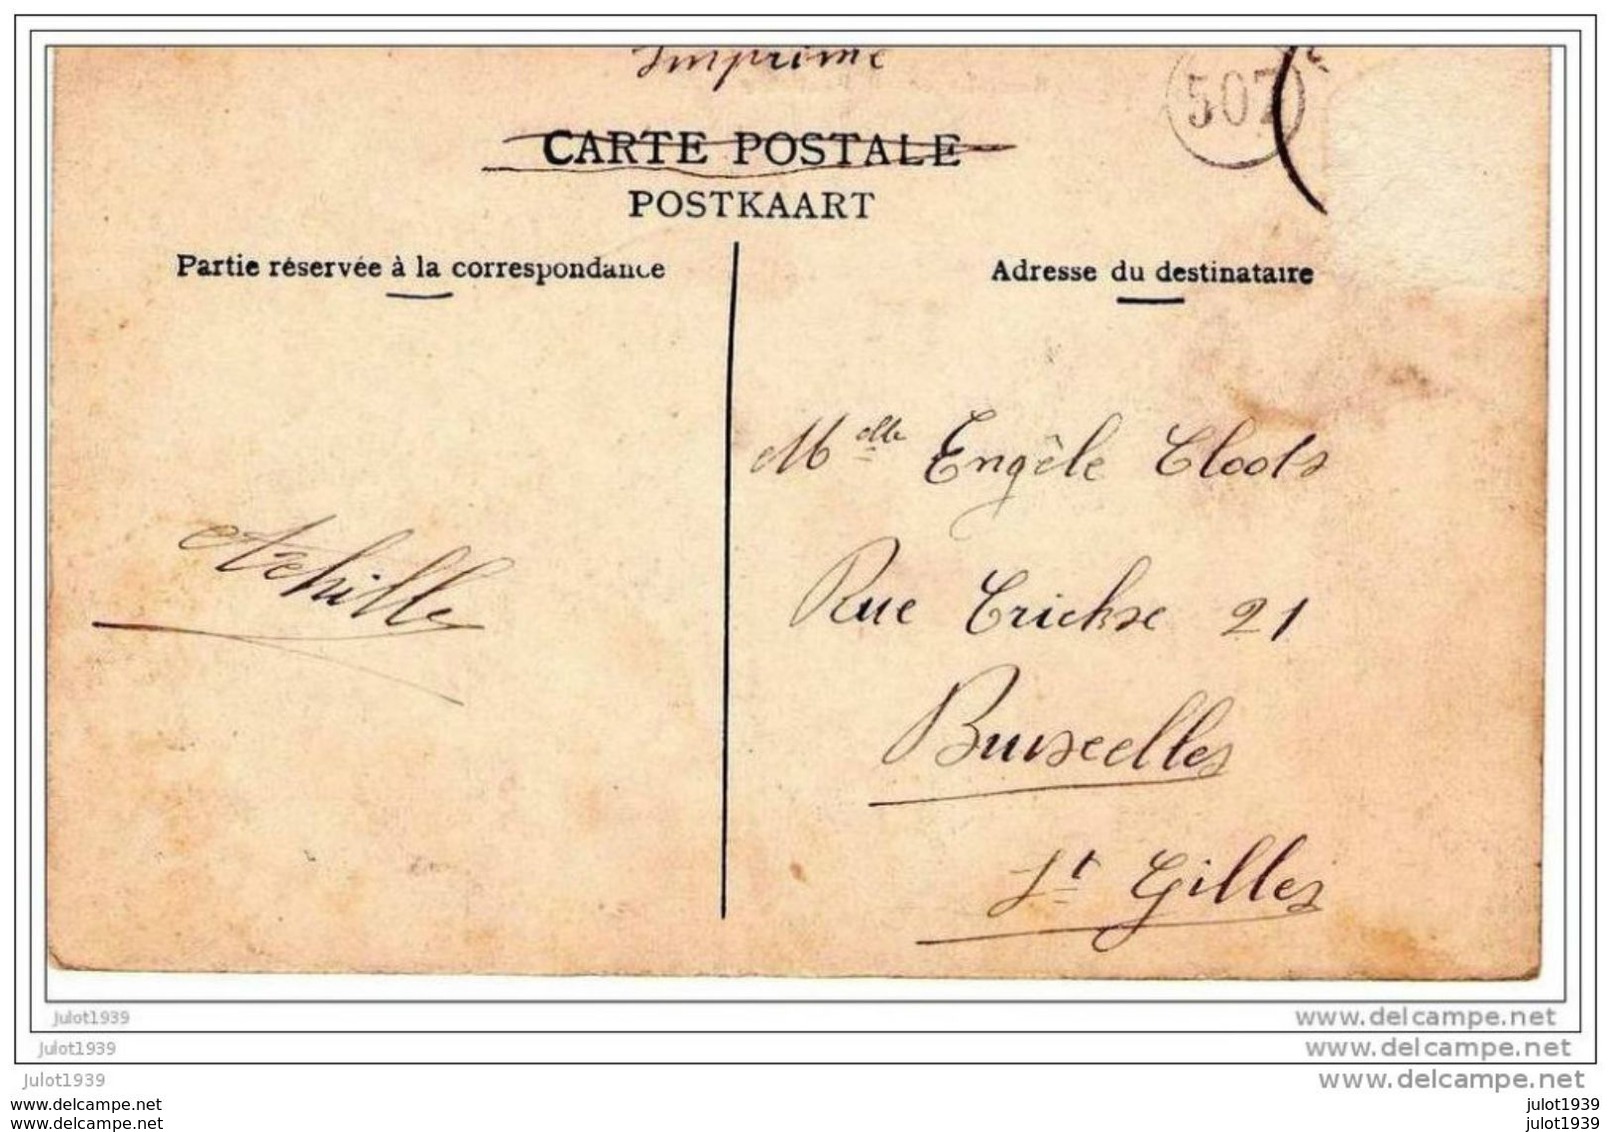 Imprimé
507
CARTE POSTALE
POSTKAART
Partie réservée à la correspondance
Adresse du destinataire
Achille
Melle Engèle Cloots
Rue Crickse 21
Bruxelles
St Gilles
julot1939
www.delcampe.net
julot1939
www.delcampe.net
julot1939
www.delcampe.net
www.delcampe.net
julot1939
www.delcampe.net
julot1939